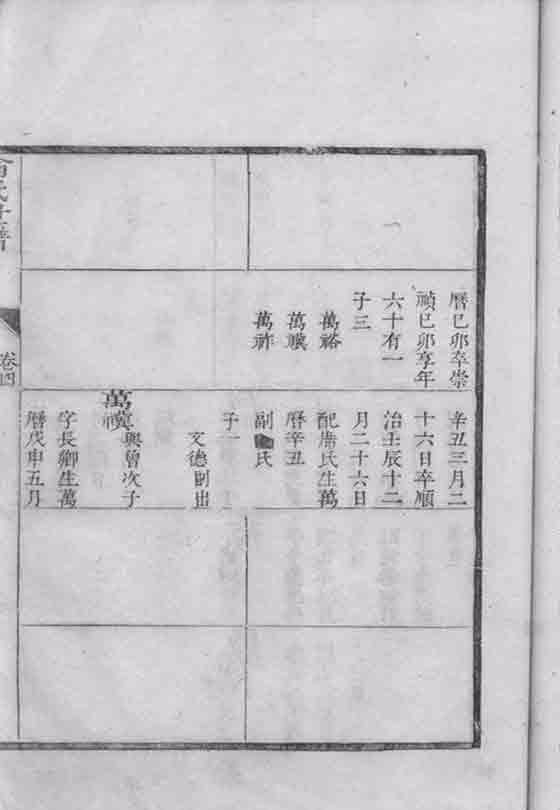 曆己卯卒崇
禎己卯享年
六十有一
子三
萬裕
萬禩
萬祚
辛丑三月二
十六日卒順
治壬辰十二
月二十六日
配席氏生萬
曆辛丑
副 氏
子一
文德副出
萬
興曾次子
字長卿生萬
曆戊申五月
氏
譜
卷四